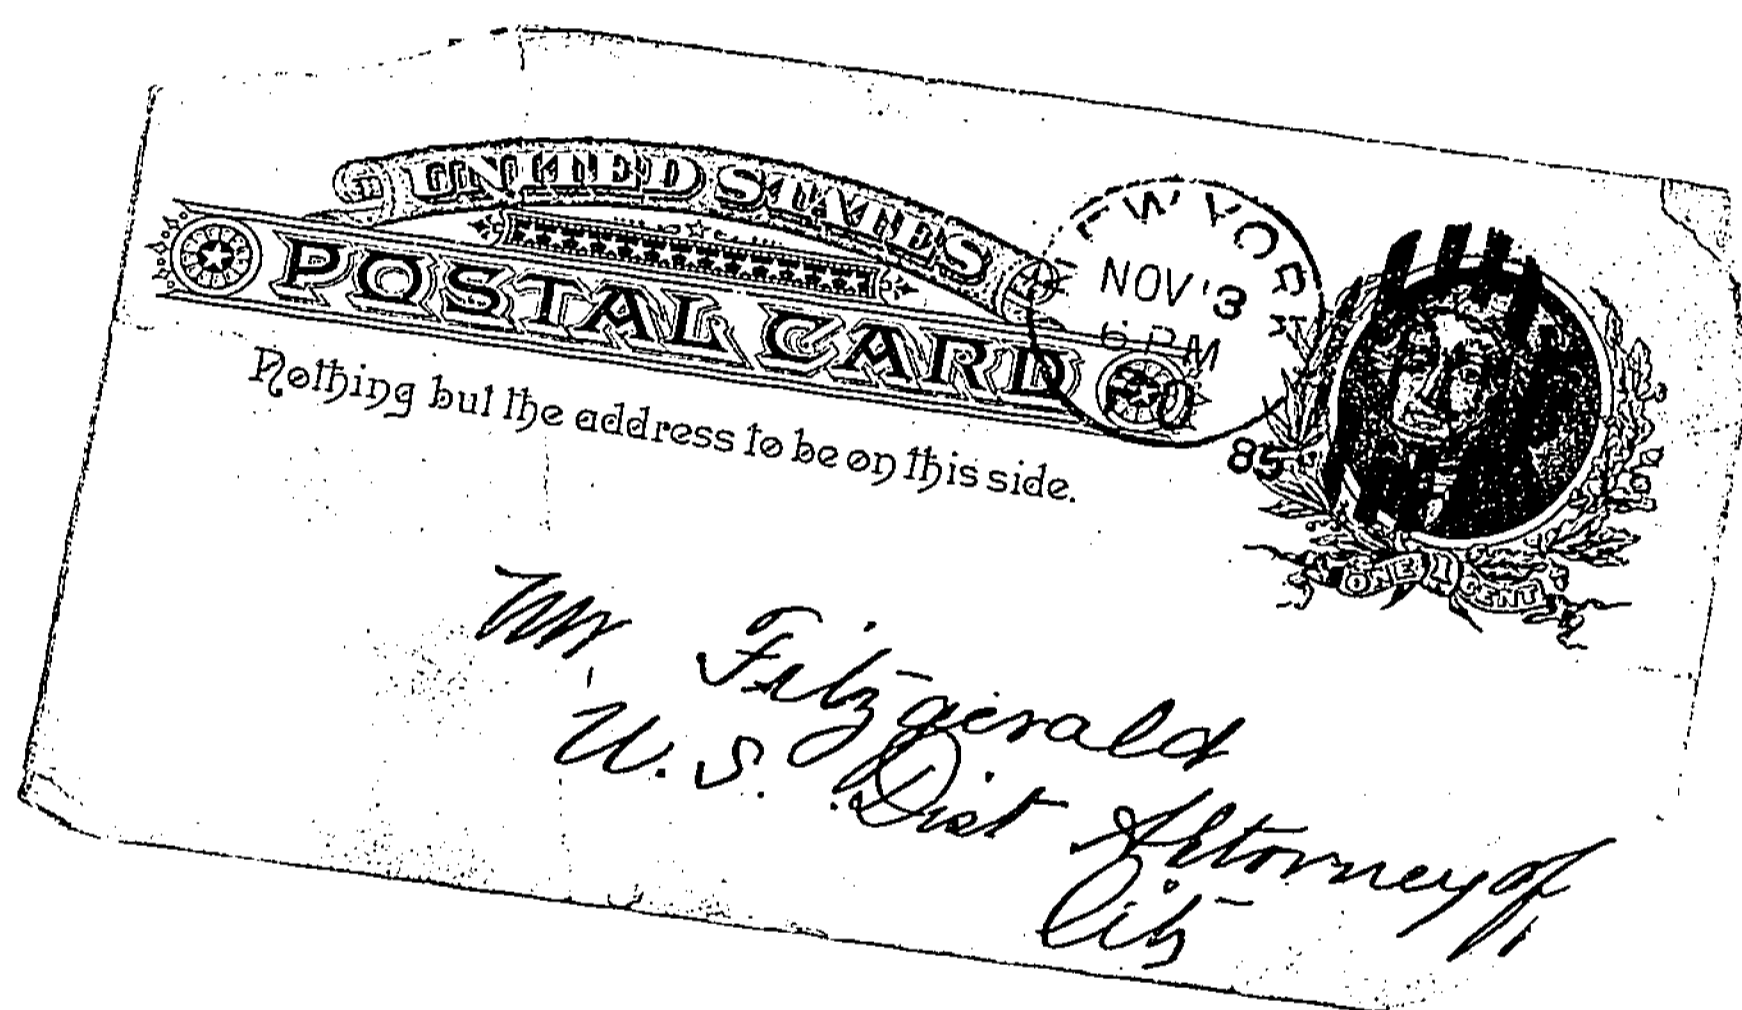 UNITED STATES
POSTAL CARD
Nothing but the address to be on this side.
NEW YORK
NOV '3
6 PM
85
ONE 1 CENT
Mr. Fitzgerald
U. S. Dist Attorney of
City